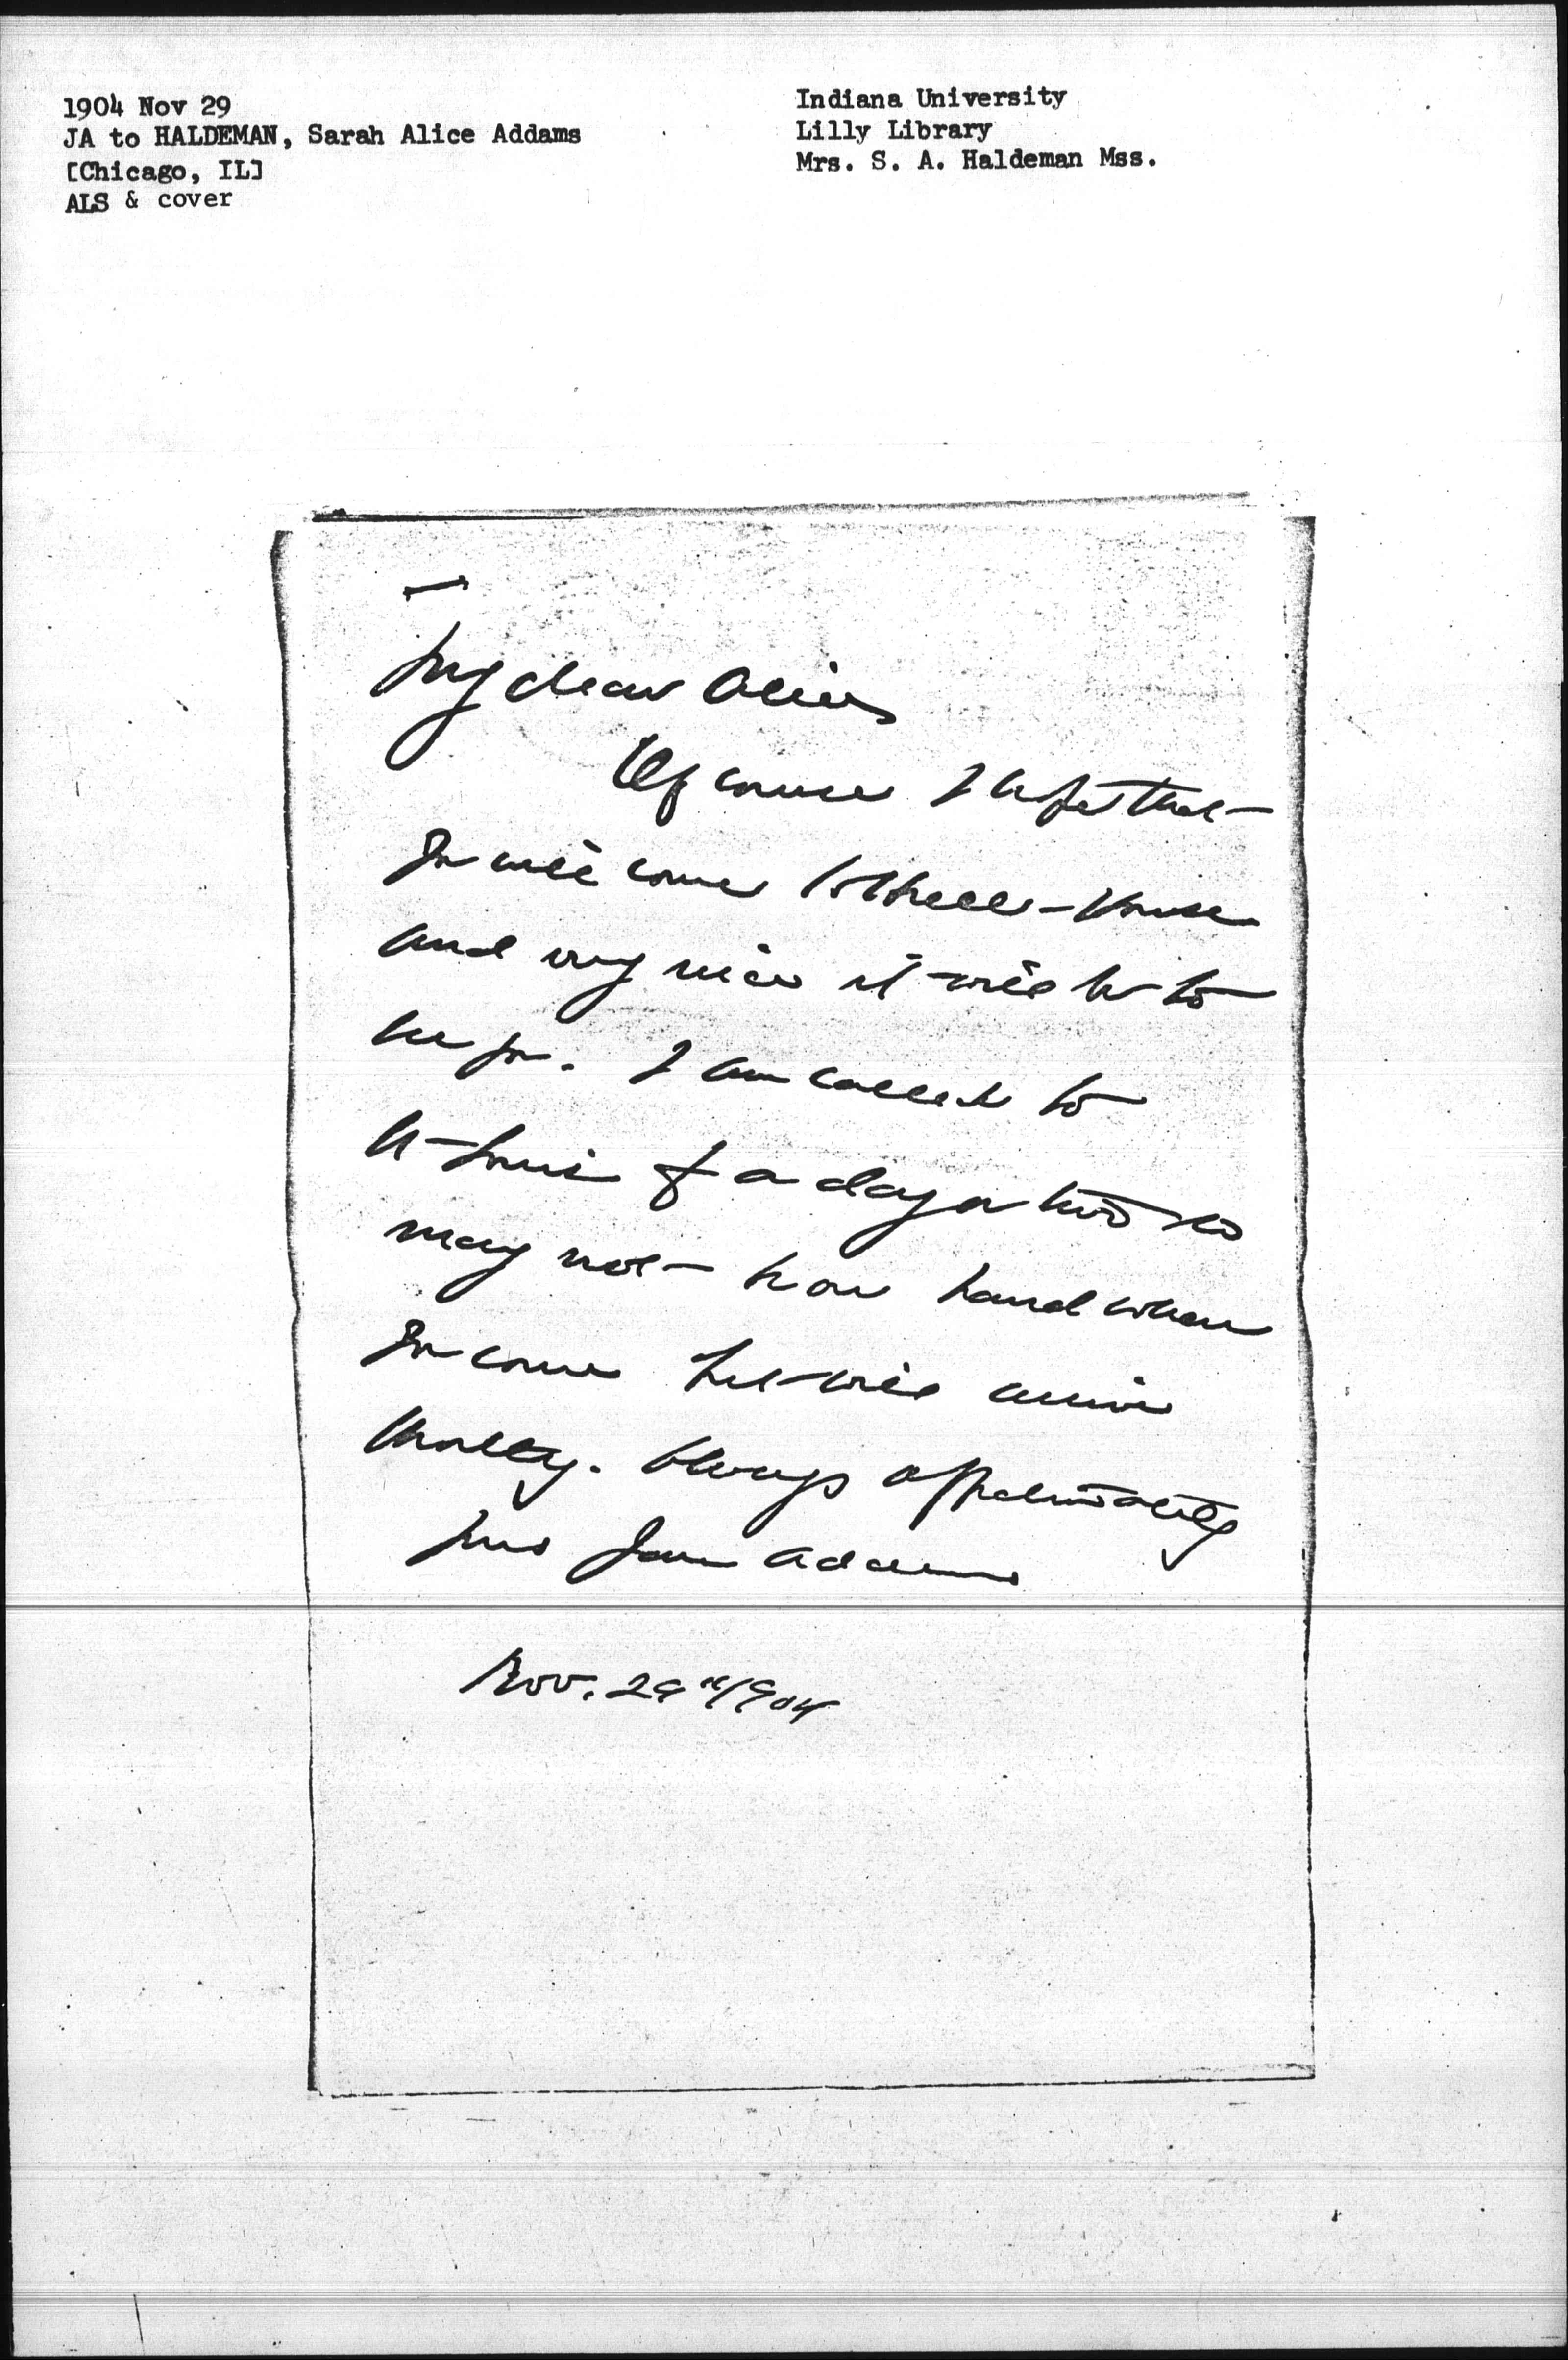 1904 Nov 29
JA to HALDEMAN, Sarah Alice Addams
[Chicago, IL]
ALS & cover
Indiana University
Lilly Library
Mrs. S. A. Haldeman Mss.
My dear Alice
Of course I hope that
you will come to Hull-House
and very nice it will be to
see you. I am called to
St Louis for a day or two so
may not be on hand when
you come but will arrive
shortly. Always affectionately
yours Jane Addams
Nov. 29" 1904